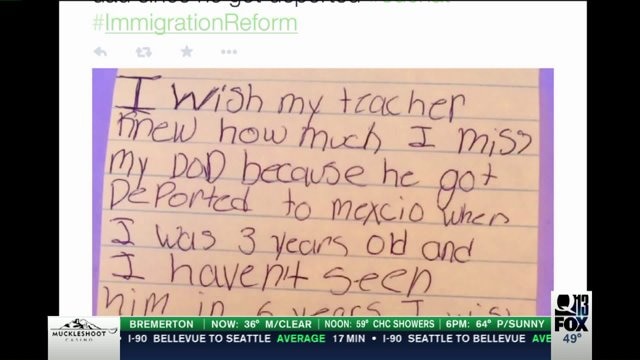 dad since he got deported
#ImmigrationReform
I wish my teacher
knew how much I miss
my DaD because he got
DePorted to mexcio when
I was 3 years old and
I haven't seen
him in 6 years I wish
MUCKLESHOOT
CASINO
BREMERTON | NOW: 36° M/CLEAR | NOON: 59° CHC SHOWERS | 6PM: 64° P/SUNNY
• I-90 BELLEVUE TO SEATTLE AVERAGE 17 MIN • I-90 SEATTLE TO BELLEVUE AVE
Q13
FOX
49°